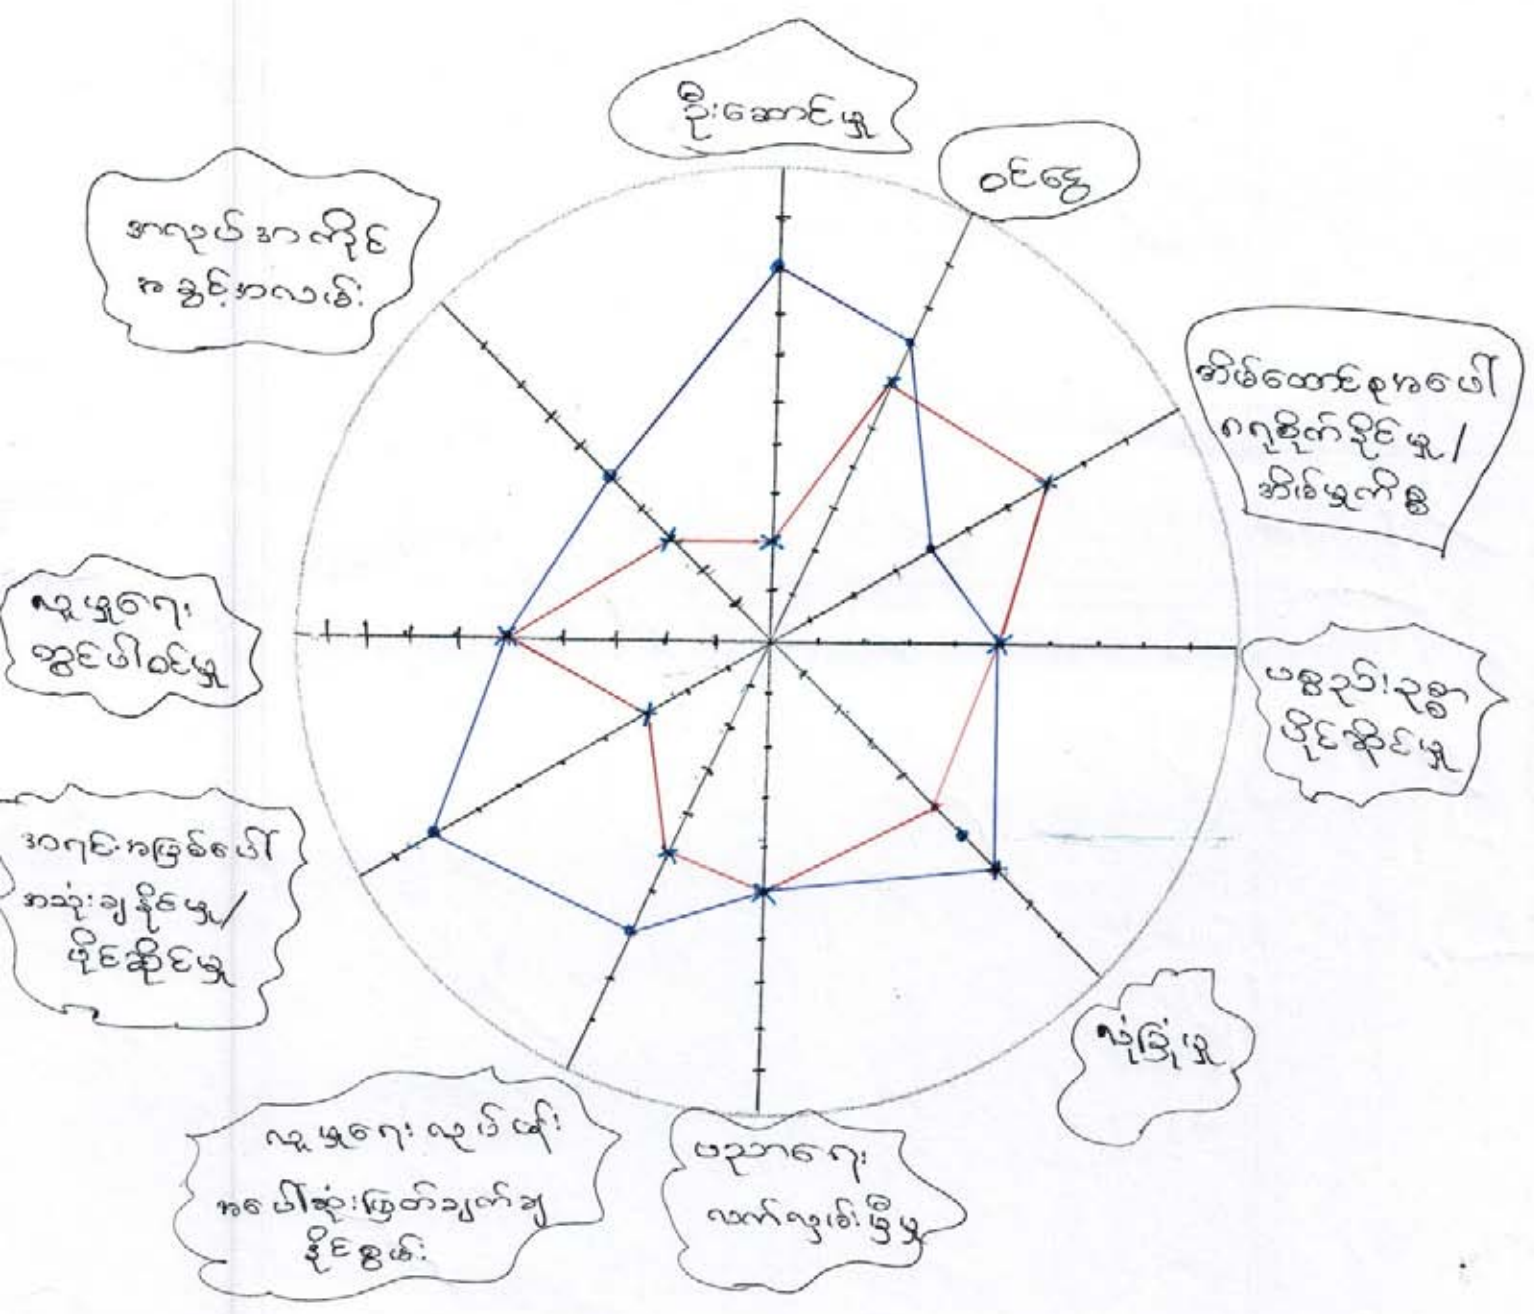 ဦးဆောင်မှု
ဝင်ငွေ
အိမ်ထောင်စုအပေါ်
ဂရုစိုက်နိုင်မှု/
အိမ်မှုကိစ္စ
ပစ္စည်းဥစ္စာ
ပိုင်ဆိုင်မှု
လုံခြုံမှု
ပညာရေး
လက်လှမ်းမှီမှု
လူမှုရေးလုပ်ငန်း
အပေါ်ဆုံးဖြတ်ချက်ချ
နိုင်စွမ်း
အရင်းအမြစ်ပေါ်
အသုံးချနိုင်မှု/
ပိုင်ဆိုင်မှု
လူမှုရေး
တွင်ပါဝင်မှု
အလုပ်အကိုင်
အခွင့်အလမ်း